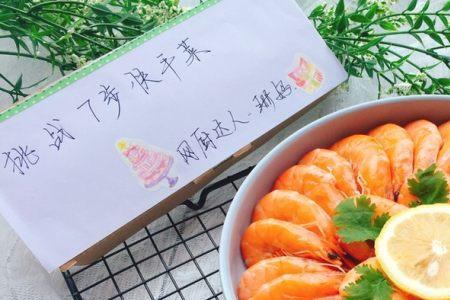 挑战7步快手菜
网厨达人·琳妈